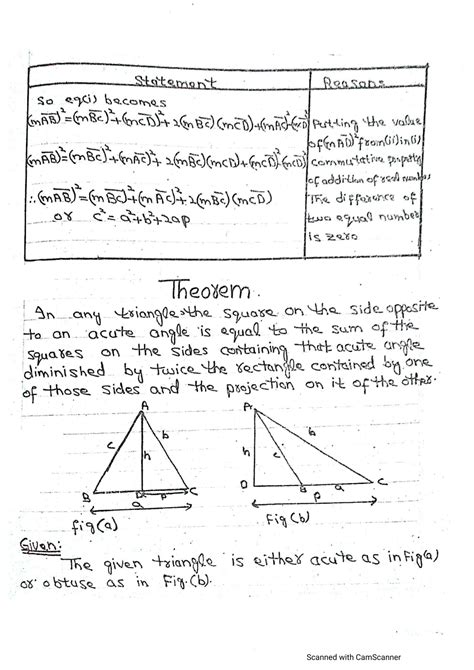 Statement
Reasons
So eq(i) becomes
(mAB)²=(mBC)²+(mCD)²+2(mBC)(mCD)+(mAC)²-(mCD)²
Putting the value
of (mAD)² from(ii)in(i)
(mAB)²=(mBC)²+(mAC)²+2(mBC)(mCD)+(mCD)²-(mCD)²
commutative property
of addition of real numbers
∴(mAB)²=(mBC)²+(mAC)²+2(mBC)(mCD)
The difference of
or c²=a²+b²+2ap
two equal number
is zero
Theorem.
In any triangle the square on the side opposite
to an acute angle is equal to the sum of the
squares on the sides containing that acute angle
diminished by twice the rectangle contained by one
of those sides and the projection on it of the other.
A
c h b
B D p C
a
fig(a)
A
h c b
D B a C
p
Fig(b)
Given:
The given triangle is either acute as in Fig(a)
or obtuse as in Fig.(b).
Scanned with CamScanner